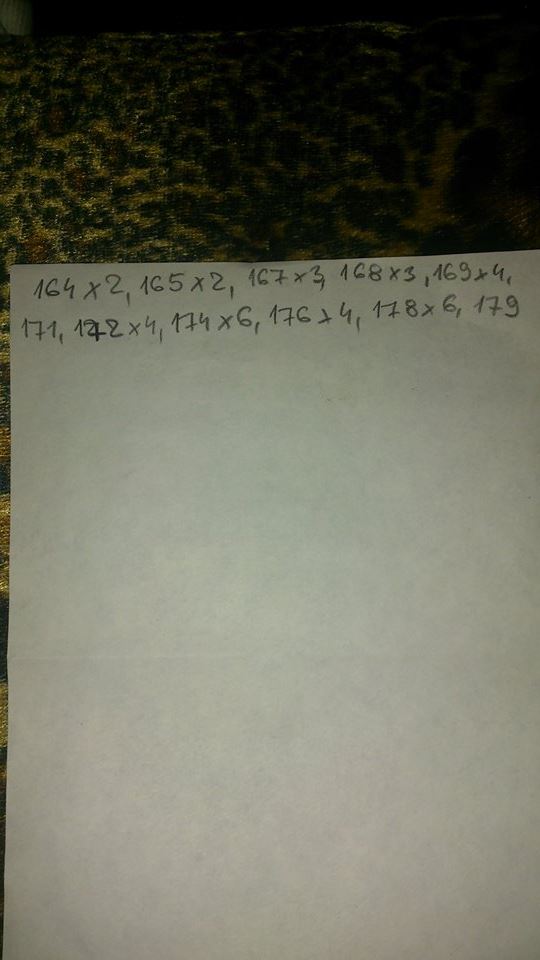 164 x 2, 165 x 2, 167 x 3, 168 x 3, 169 x 4,
171, 172 x 4, 174 x 6, 176 x 4, 178 x 6, 179